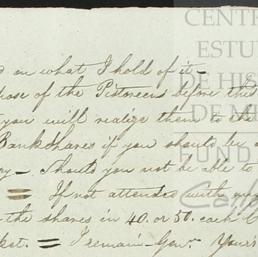 CENTR
ESTU
DE HIS
DE M
FUND
Carlo
on what I hold of it —
of the Pistoreens before this
you will realize them to the
Bank Shares if you should be a
— Should you not be able to
= If not attended with any
the shares in 40 or 50 each
= I remain — Gen. Your's